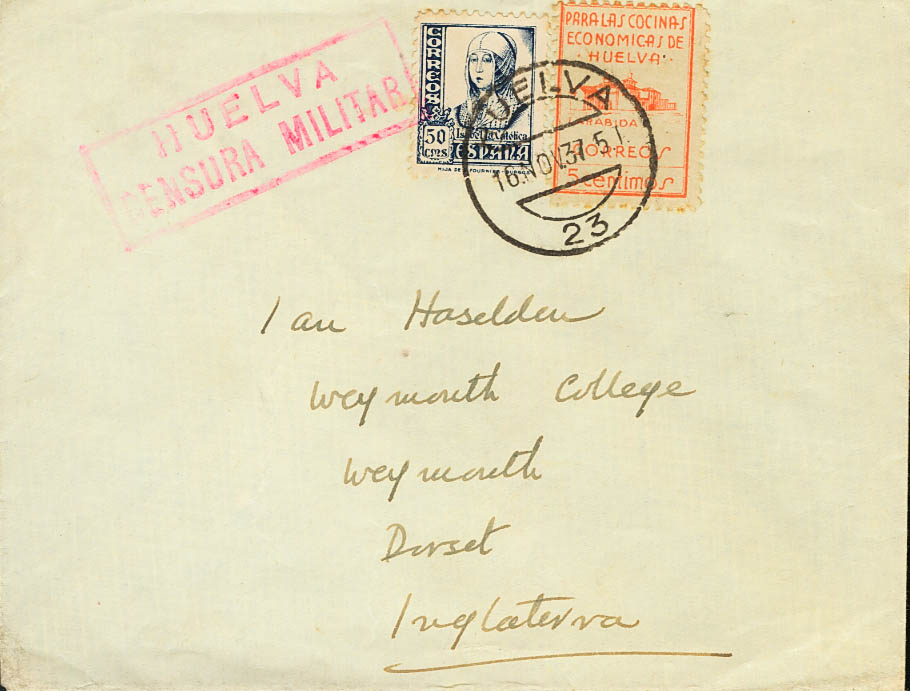 HUELVA
CENSURA MILITAR
CORREOS
50
cms
Isabel la Católica
ESPAÑA
HIJA DE FOURNIER-BURGOS
PARA LAS COCINAS
ECONOMICAS DE
HUELVA
RABIDA
CORREOS
5 centimos
HUELVA
16.NOV.37.5T
23
Ian Haselden
Weymouth College
Weymouth
Dorset
Inglaterra